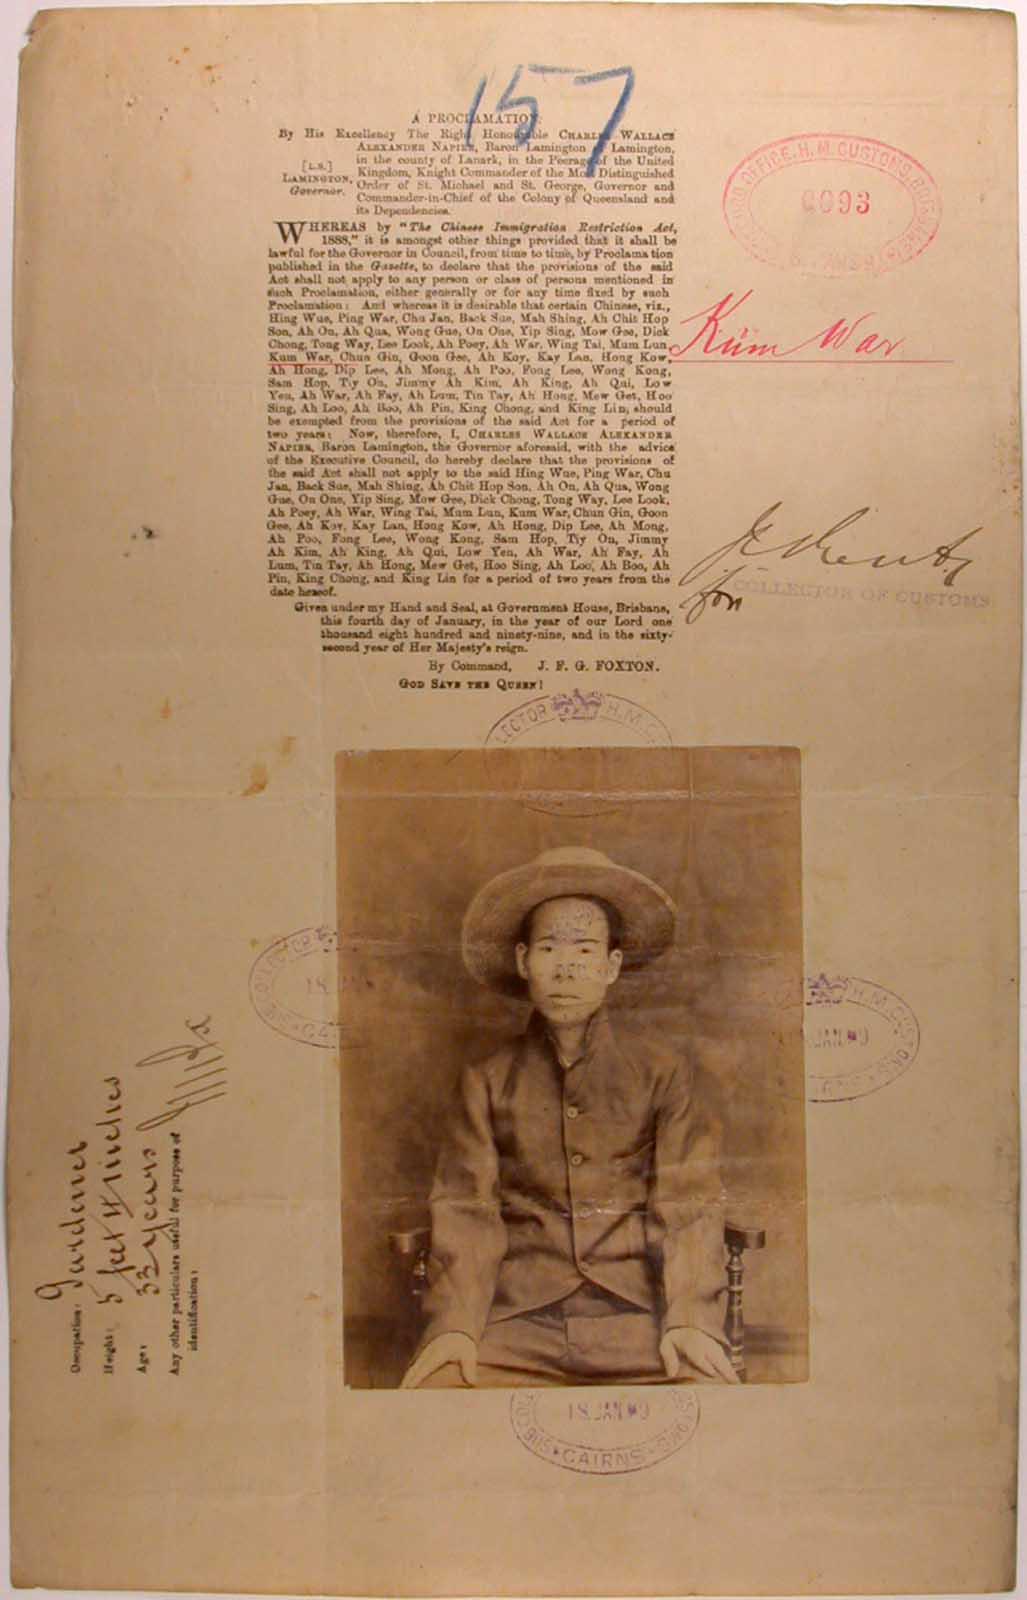 157
A PROCLAMATION.
By His Excellency The Right Honourable CHARLES WALLACE
ALEXANDER NAPIER, Baron Lamington of Lamington,
in the county of Lanark, in the Peerage of the United
[L.S.]
Kingdom, Knight Commander of the Most Distinguished
LAMINGTON,
Order of St. Michael and St. George, Governor and
Governor.
Commander-in-Chief of the Colony of Queensland and
its Dependencies.
WHEREAS by "The Chinese Immigration Restriction Act,
1888," it is amongst other things provided that it shall be
lawful for the Governor in Council, from time to time, by Proclamation
published in the Gazette, to declare that the provisions of the said
Act shall not apply to any person or class of persons mentioned in
such Proclamation, either generally or for any time fixed by such
Proclamation: And whereas it is desirable that certain Chinese, viz.,
Hing Wue, Ping War, Chu Jan, Back Sue, Mah Shing, Ah Chit Hop
Son, Ah On, Ah Qua, Wong Gue, On One, Yip Sing, Mow Gee, Dick
Chong, Tong Way, Lee Look, Ah Poey, Ah War, Wing Tai, Mum Lun,
Kum War, Chun Gin, Goon Gee, Ah Koy, Kay Lan, Hong Kow,
Ah Hong, Dip Lee, Ah Mong, Ah Poo, Fong Lee, Wong Kong,
Sam Hop, Tiy On, Jimmy Ah Kim, Ah King, Ah Qui, Low
Yen, Ah War, Ah Fay, Ah Lum, Tin Tay, Ah Hong, Mew Get, Hoo
Sing, Ah Loo, Ah Boo, Ah Pin, King Chong, and King Lin, should
be exempted from the provisions of the said Act for a period of
two years: Now, therefore, I, CHARLES WALLACE ALEXANDER
NAPIER, Baron Lamington, the Governor aforesaid, with the advice
of the Executive Council, do hereby declare that the provisions of
the said Act shall not apply to the said Hing Wue, Ping War, Chu
Jan, Back Sue, Mah Shing, Ah Chit Hop Son, Ah On, Ah Qua, Wong
Gue, On One, Yip Sing, Mow Gee, Dick Chong, Tong Way, Lee Look,
Ah Poey, Ah War, Wing Tai, Mum Lun, Kum War, Chun Gin, Goon
Gee, Ah Koy, Kay Lan, Hong Kow, Ah Hong, Dip Lee, Ah Mong,
Ah Poo, Fong Lee, Wong Kong, Sam Hop, Tiy On, Jimmy
Ah Kim, Ah King, Ah Qui, Low Yen, Ah War, Ah Fay, Ah
Lum, Tin Tay, Ah Hong, Mew Get, Hoo Sing, Ah Loo, Ah Boo, Ah
Pin, King Chong, and King Lin for a period of two years from the
date hereof.
Given under my Hand and Seal, at Government House, Brisbane,
this fourth day of January, in the year of our Lord one
thousand eight hundred and ninety-nine, and in the sixty-
second year of Her Majesty's reign.
By Command, J. F. G. FOXTON.
GOD SAVE THE QUEEN!
RECORD OFFICE. H.M. CUSTOMS, BRISBANE
0093
Kum War
for
COLLECTOR OF CUSTOMS
COLLECTOR H.M. CUSTOMS
SUB COLLECTOR
18 JAN
H.M. CUSTOMS
JAN
18 JAN
CAIRNS
Occupation: Gardener
Height: 5 feet 4 inches
Age: 33 years
Any other particulars useful for purpose of
identification: